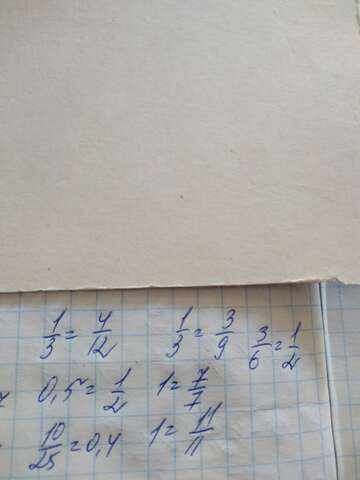 1/3 = 4/12 1/3 = 3/9 3/6 = 1/2
0,5 = 1/2 1 = 7/7
10/25 = 0,4 1 = 11/11